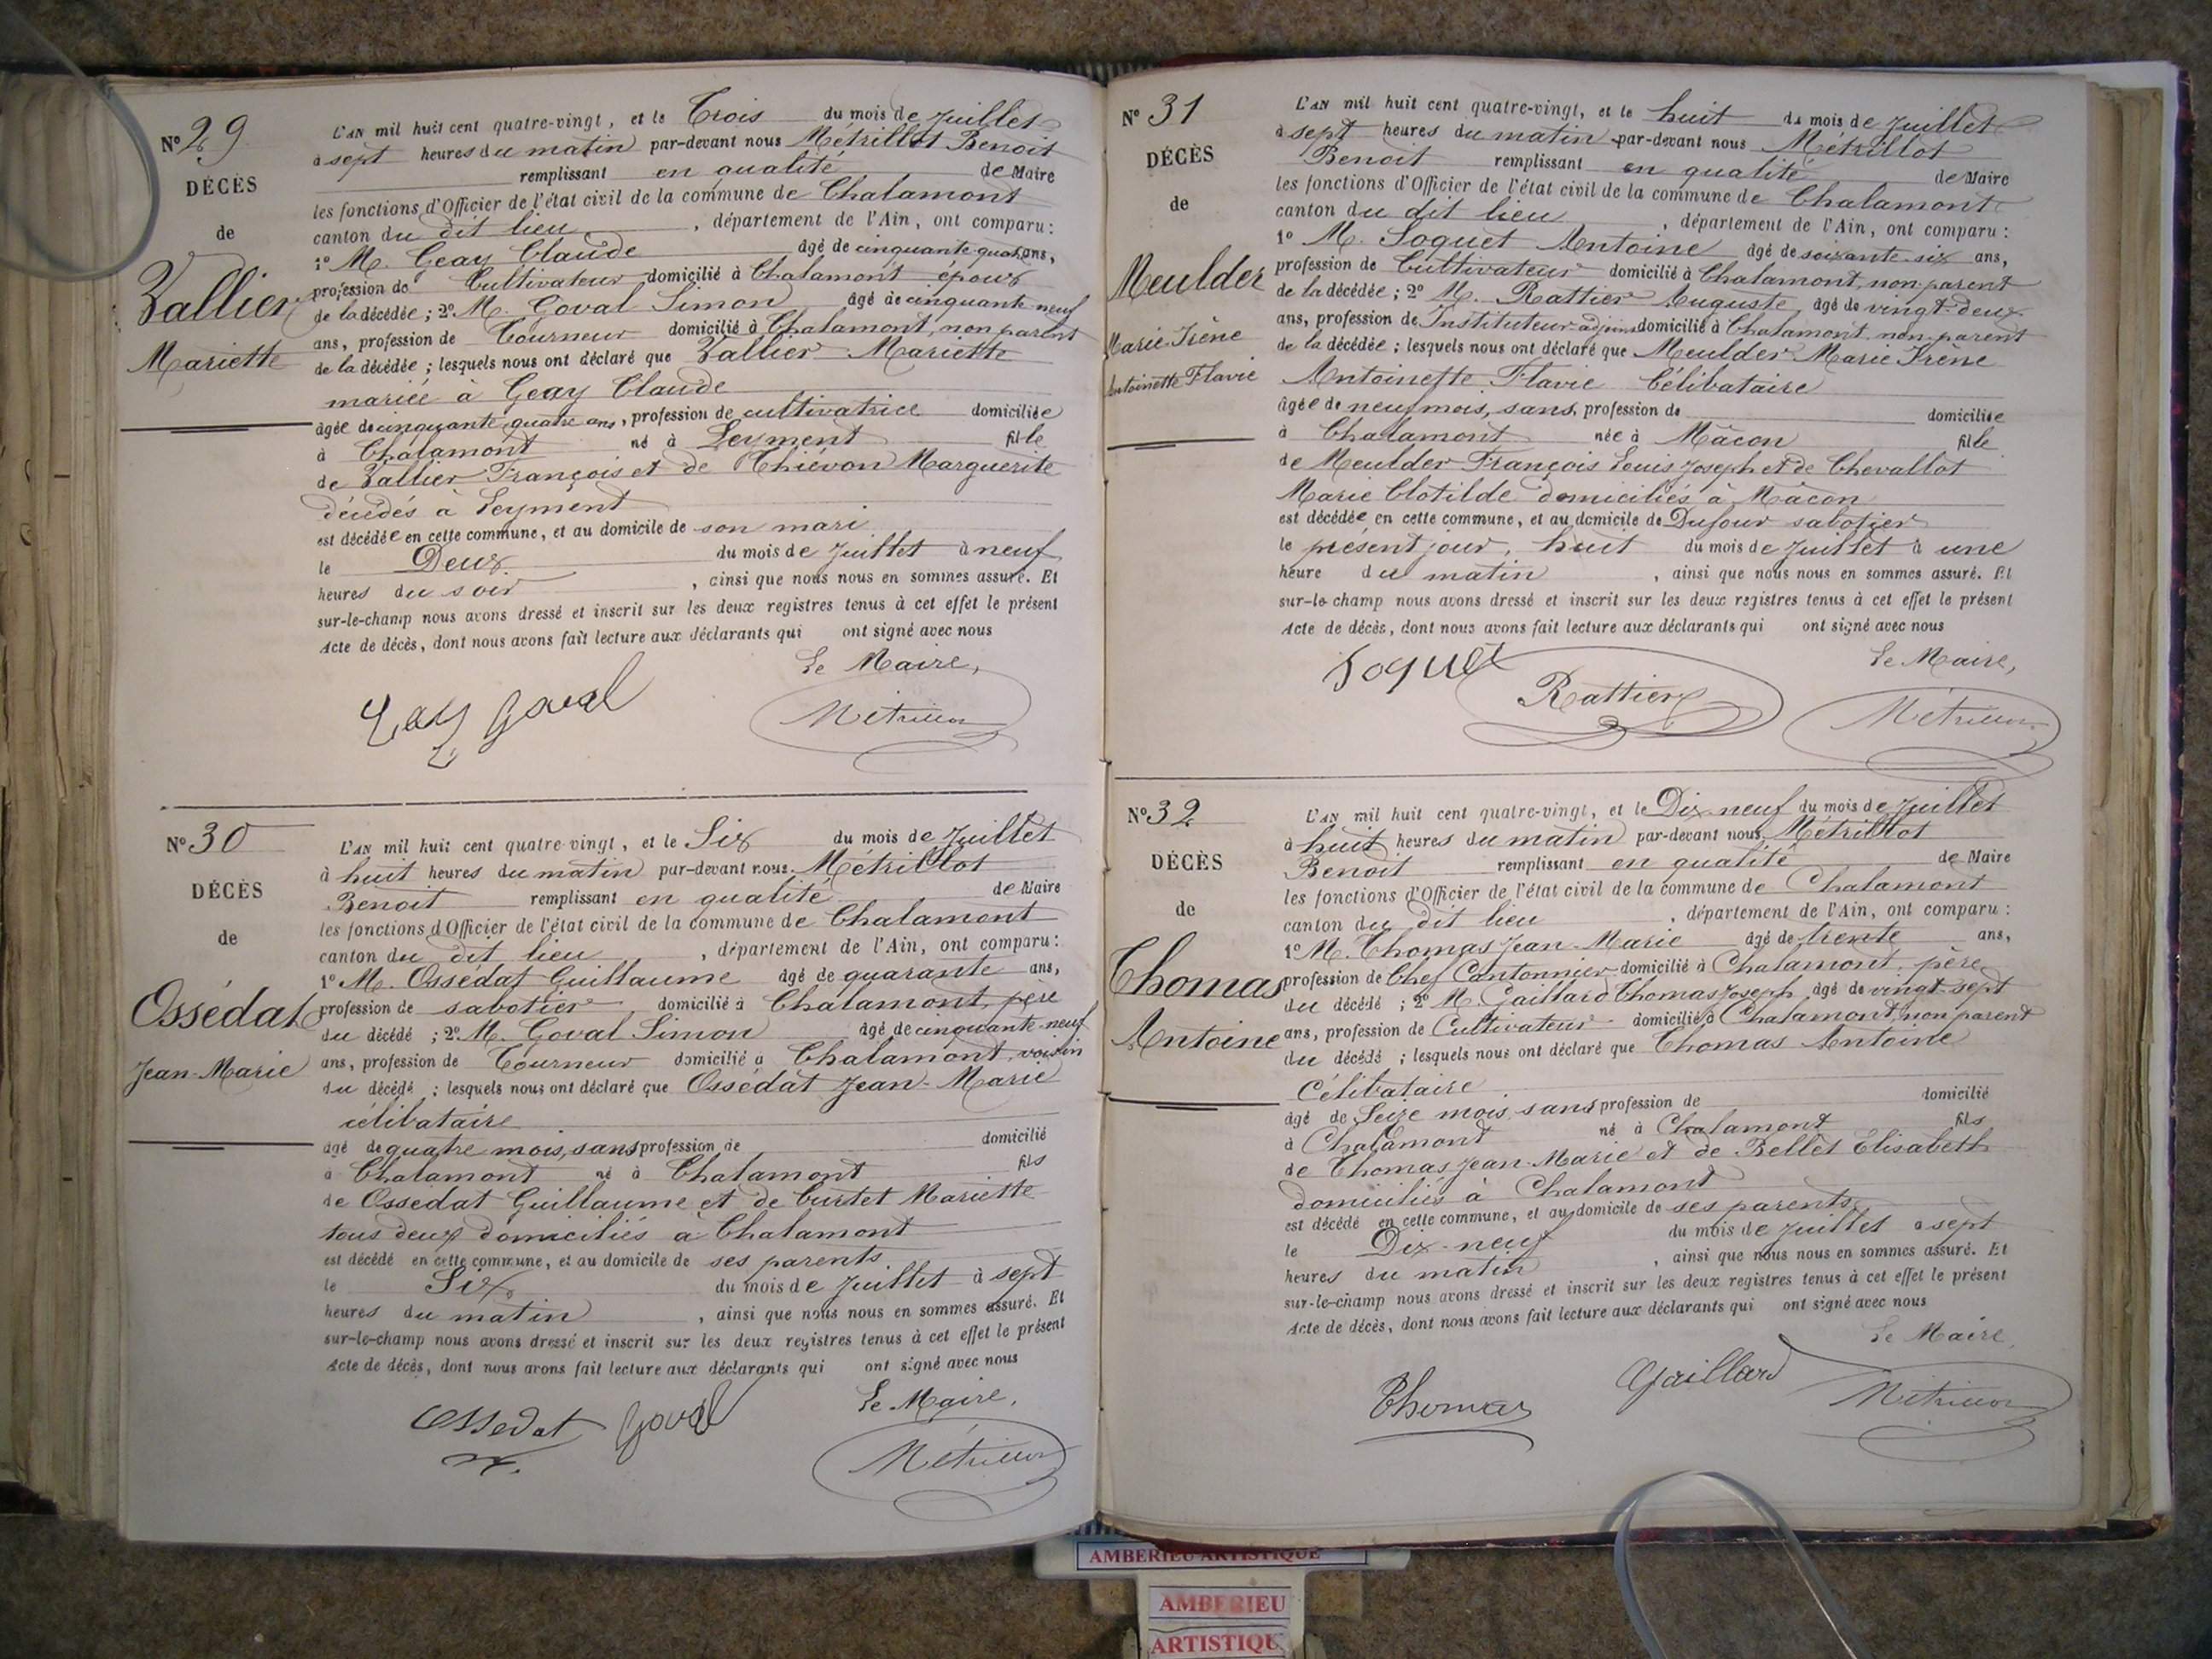 N° 29
DÉCÈS
de
Vallier
Mariette
L'AN mil huit cent quatre-vingt, et le Trois du mois de Juillet
à sept heures du matin par-devant nous Métrillot Benoit
remplissant en qualité de Maire
les fonctions d'Officier de l'état civil de la commune de Chalamont
canton du dit lieu, département de l'Ain, ont comparu :
1° M. Geay Claude âgé de cinquante-quatre ans,
profession de Cultivateur domicilié à Chalamont époux
de la décédée ; 2° M. Goval Simon âgé de cinquante-neuf
ans, profession de Tourneur domicilié à Chalamont, non parent
de la décédée ; lesquels nous ont déclaré que Vallier Mariette
mariée à Geay Claude
âgée de cinquante quatre ans, profession de cultivatrice domiciliée
à Chalamont né à Leyment fille
de Vallier François et de Thiévon Marguerite
décédés à Leyment
est décédée en cette commune, et au domicile de son mari
le Deux du mois de Juillet à neuf
heures du soir, ainsi que nous nous en sommes assuré. Et
sur-le-champ nous avons dressé et inscrit sur les deux registres tenus à cet effet le présent
Acte de décès, dont nous avons fait lecture aux déclarants qui ont signé avec nous
Le Maire,
Geay Goval Métrillot
N° 30
DÉCÈS
de
Ossédat
Jean-Marie
L'AN mil huit cent quatre-vingt, et le Six du mois de Juillet
à huit heures du matin par-devant nous Métrillot
Benoit remplissant en qualité de Maire
les fonctions d'Officier de l'état civil de la commune de Chalamont
canton du dit lieu, département de l'Ain, ont comparu :
1° M. Ossédat Guillaume âgé de quarante ans,
profession de sabotier domicilié à Chalamont, père
du décédé ; 2° M. Goval Simon âgé de cinquante-neuf
ans, profession de Tourneur domicilié à Chalamont, voisin
du décédé ; lesquels nous ont déclaré que Ossédat Jean-Marie
célibataire
âgé de quatre mois, sans profession de domicilié
à Chalamont né à Chalamont fils
de Ossédat Guillaume et de Curtet Mariette
tous deux domiciliés à Chalamont
est décédé en cette commune, et au domicile de ses parents
le Six du mois de Juillet à sept
heures du matin, ainsi que nous nous en sommes assuré. Et
sur-le-champ nous avons dressé et inscrit sur les deux registres tenus à cet effet le présent
Acte de décès, dont nous avons fait lecture aux déclarants qui ont signé avec nous
Le Maire,
Ossedat Goval Métrillot
N° 31
DÉCÈS
de
Meulder
Marie Irène
Antoinette Flavie
L'AN mil huit cent quatre-vingt, et le huit du mois de Juillet
à sept heures du matin par-devant nous Métrillot
Benoit remplissant en qualité de Maire
les fonctions d'Officier de l'état civil de la commune de Chalamont
canton du dit lieu, département de l'Ain, ont comparu :
1° M. Soquet Antoine âgé de soixante-six ans,
profession de Cultivateur domicilié à Chalamont, non parent
de la décédée ; 2° M. Rattier Auguste, âgé de vingt-deux
ans, profession de Instituteur-adjoint domicilié à Chalamont, non parent
de la décédée ; lesquels nous ont déclaré que Meulder Marie Irène
Antoinette Flavie Célibataire
âgée de neuf mois, sans, profession de domiciliée
à Chalamont née à Mâcon fille
de Meulder François Louis Joseph et de Chevallot
Marie Clotilde domiciliés à Mâcon
est décédée en cette commune, et au domicile de Dufour sabotier
le présent jour, huit du mois de Juillet à une
heure du matin, ainsi que nous nous en sommes assuré. Et
sur-le-champ nous avons dressé et inscrit sur les deux registres tenus à cet effet le présent
Acte de décès, dont nous avons fait lecture aux déclarants qui ont signé avec nous
Le Maire,
Soquet Rattier Métrillot
N° 32
DÉCÈS
de
Thomas
Antoine
L'AN mil huit cent quatre-vingt, et le Dix-neuf du mois de Juillet
à huit heures du matin par-devant nous Métrillot
Benoit remplissant en qualité de Maire
les fonctions d'Officier de l'état civil de la commune de Chalamont
canton du dit lieu, département de l'Ain, ont comparu :
1° M. Thomas Jean-Marie âgé de trente ans,
profession de Chef Cantonnier domicilié à Chalamont, père
du décédé ; 2° M. Gaillard Thomas Joseph, âgé de vingt-sept
ans, profession de Cultivateur domicilié à Chalamont, non parent
du décédé ; lesquels nous ont déclaré que Thomas Antoine
Célibataire
âgé de Seize mois, sans profession de domicilié
à Chalamont né à Chalamont fils
de Thomas Jean-Marie et de Bellet Elisabeth
domiciliés à Chalamont
est décédé en cette commune, et au domicile de ses parents
le Dix-neuf du mois de Juillet à sept
heures du matin, ainsi que nous nous en sommes assuré. Et
sur-le-champ nous avons dressé et inscrit sur les deux registres tenus à cet effet le présent
Acte de décès, dont nous avons fait lecture aux déclarants qui ont signé avec nous
Le Maire,
Thomas Gaillard Métrillot
AMBERIEU ARTISTIQUE
AMBERIEU
ARTISTIQU